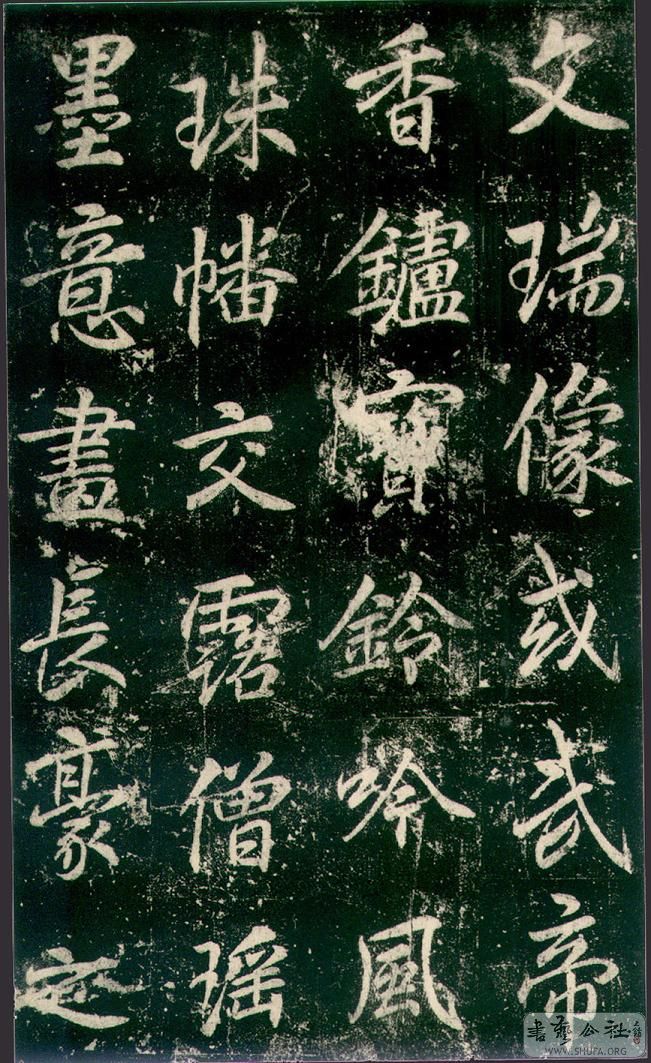 文瑞像或武帝
香鑪寶鈴吟風
珠幡交露僧瑤
墨意畫長豪
書藝公社
WWW.SHUFA.ORG